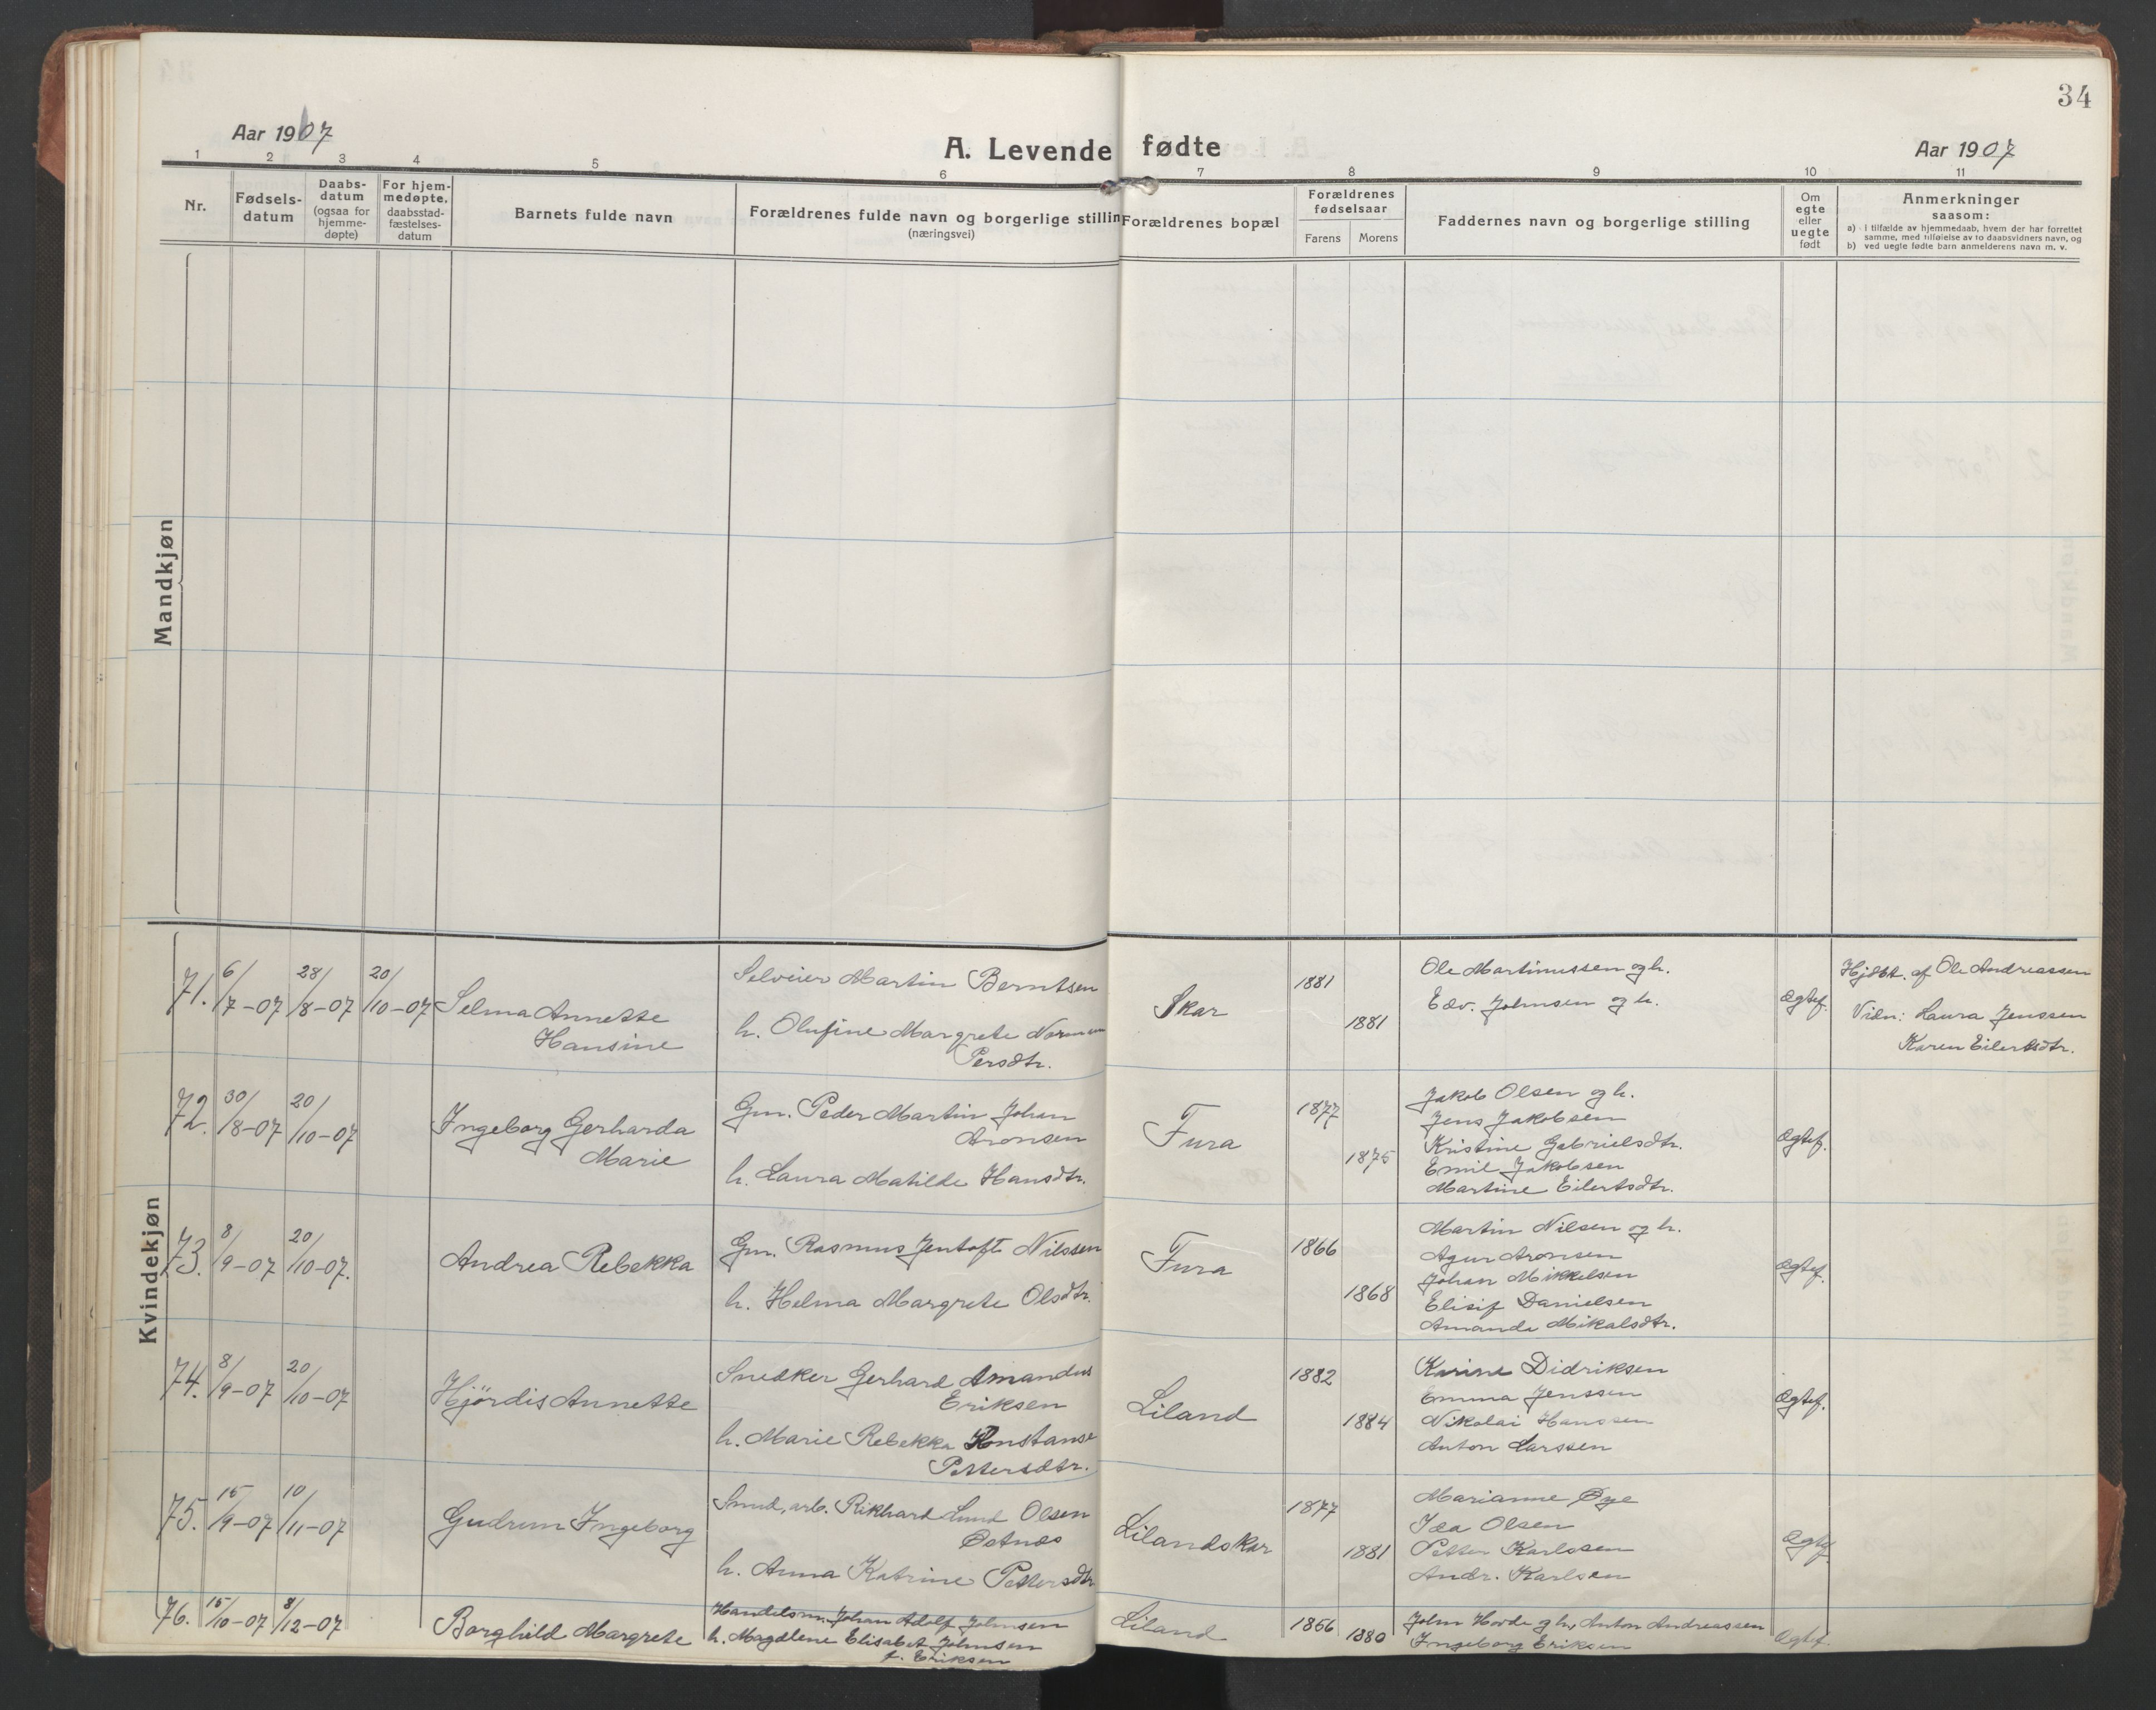 34
Aar 1907
A. Levende fødte
Aar 1907
1 2 3 4 5 6 7 8 9 10 11
Nr.
Fødsels-
datum
Daabs-
datum
(ogsaa for
hjemme-
døpte)
For hjem-
medøpte.
daabsstad-
fæstelses-
datum
Barnets fulde navn
Forældrenes fulde navn og borgerlige stillin
(næringsvei)
Forældrenes bopæl
Forældrenes
fødselsaar
Farens Morens
Faddernes navn og borgerlige stilling
Om
egte
eller
uegte
født
Anmerkninger
saasom:
a) i tilfælde av hjemmedaab, hvem der har forrettet
samme, med tilføielse av to daabsvidners navn, og
b) ved uegte fødte barn anmelderens navn m. v.
Mandkjøn
Kvindekjøn
71. 6/7-07 28/8-07 20/10-07
Selma Annette
Hansine
Selveier Martin Berntsen
h. Olufine Margrete Norman
Persdtr.
Skar
1881
1881
Ole Martinussen og h.
Edv. Johnsen og h.
Ægtef.
Hjdbt. af Ole Andreassen
Vidn: Laura Jenssen
Karen Eilertsdtr.
72. 30/8-07 20/10-07
Ingeborg Gerharda
Marie
Gm. Peder Martin Johan
Aronsen
h. Laura Matilde Hansdtr.
Fura
1877
1875
Jakob Olsen og h.
Jens Jakobsen
Kristine Gabrielsdtr.
Emil Jakobsen
Martine Eilertsdtr.
Ægtef.
73. 8/9-07 20/10-07.
Andrea Rebekka
Gm. Rasmus Jentoft Nilssen
h. Helma Margrete Olsdtr.
Fura
1866
1868
Martin Nilsen og h.
Agur Aronsen
Johan Mikkelsen
Elisif Danielsen
Amanda Mikalsdtr.
Ægtef.
74. 8/9-07 20/10-07
Hjördis Annette
Snedker Gerhard Amandus
Eriksen
h. Marie Rebekka Konstanse
Pettersdtr.
Liland
1882
1884
Karine Didriksen
Emma Jenssen
Nikolai Hanssen
Anton Larssen
Ægtef.
75. 15/9-07 10/11-07
Gudrun Ingeborg
Smed, arb. Rikhard Lund Olsen
Øetnes
h. Anna Katrine Pettersdtr
Lilandskar
1877
1881
Marianne Øye
Ida Olsen
Petter Karlssen
Andr. Karlsen
Ægtef
76. 15/10-07 8/12-07
Borghild Margrete
Handelsm. Johan Adolf Johnsen
h. Magdlene Elisabet Johnsen
f. Eriksen
Liland
1866
1880
John Horde og h., Anton Andreassen
Ingeborg Eriksen
Ægtef.